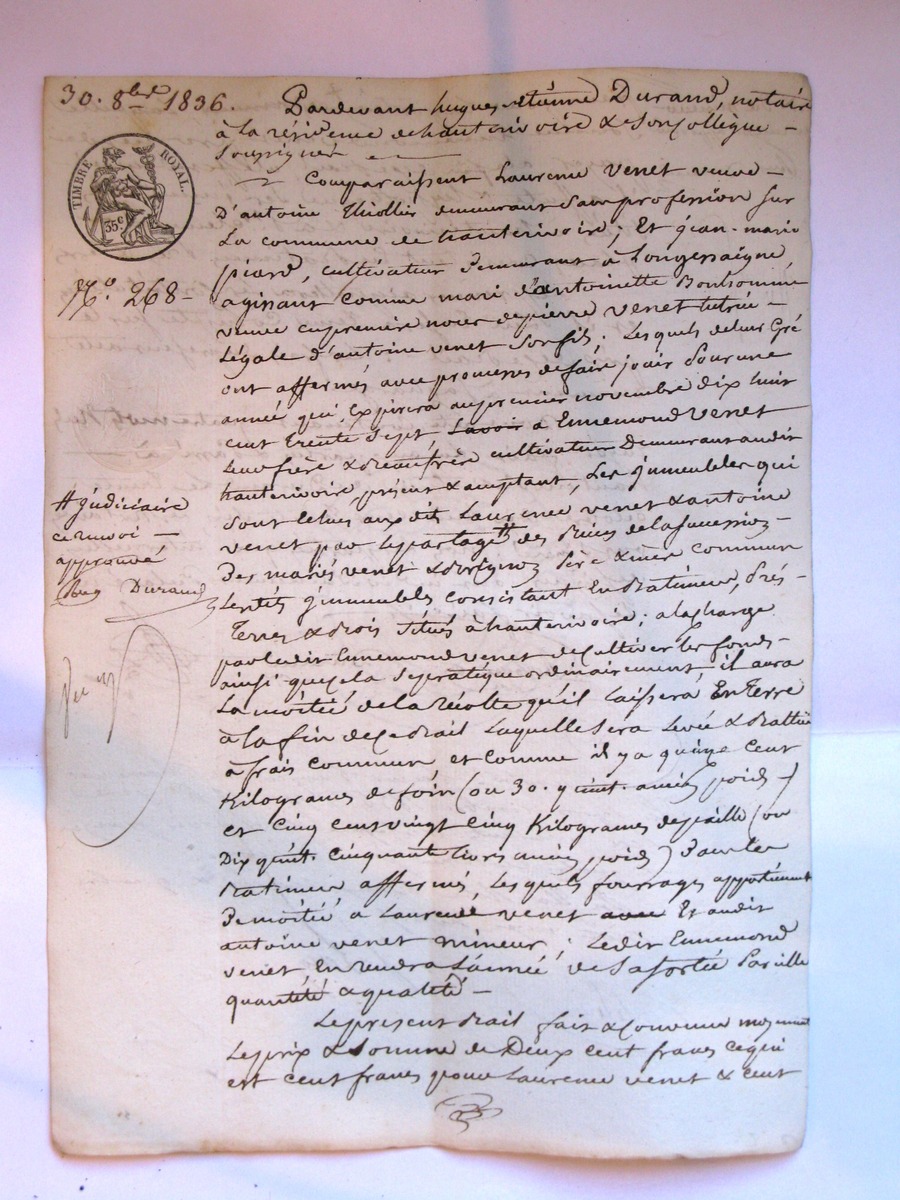 30. 8bre 1836.
Pardevant hugues etienne Durand, notaire
à la résidence de hauterivoire & son collègue -
soussignés
TIMBRE ROYAL.
35c
Comparaissent Laurence Venet veuve -
D'antoine thiollier demeurant sans profession sur
La commune de hauterivoire; Et jean-marie
piard, cultivateur demeurant à Longessaigne,
No. 268 -
agissant comme mari d'antoinette Bonhomme
veuve en première noces de pierre venet tutrice -
Légale d'antoine venet son fils; Lesquels de leur Gré
ont affermés avec promesses de faire jouir pour une
année qui Expirera au premier novembre dix huit
cent trente sept, Savoir a Ennemond Venet
Leur frère & beau frère cultivateur demeurant audit
hauterivoire, présent & acceptant, Les jmmeubles qui
sont Echus aux dits Laurence venet & antoine
# judiciaire
ce renvoi -
approuvé
Durand
venet par Le partage # des Biens de la succession -
Des mariés venet & père & mère commun
Lesdits jmmeubles consistant En Batimens, prés -
Terres & Bois situés à hauterivoire; a la charge
par ledit Ennemond venet de cultiver les fonds -
ainsi que cela se pratique ordinairement, il aura
La moitié de la récolte qu'il laissera En terre
à la fin de ce Bail laquelle sera Levée & Battue
à frais commun et comme il y a quinze cent
Kilogrames de foin (ou 30. quint. anciens poids -)
et Cinq cent vingt cinq Kilogrames de paille (ou
Dix quint. cinquante livres anciens poids) dans les
Batimens affermés, Lesquels fourrages appartiennent
De moitié a Laurence venet avec Et audit
antoine venet mineur; Ledit Ennemond
venet En rendra L'année de sa sortie Pareille
quantité & qualité -
Le present Bail fait & convenu moyennant
Le prix & Somme de Deux cent francs ce qui
est cent francs pour Laurence venet & cent